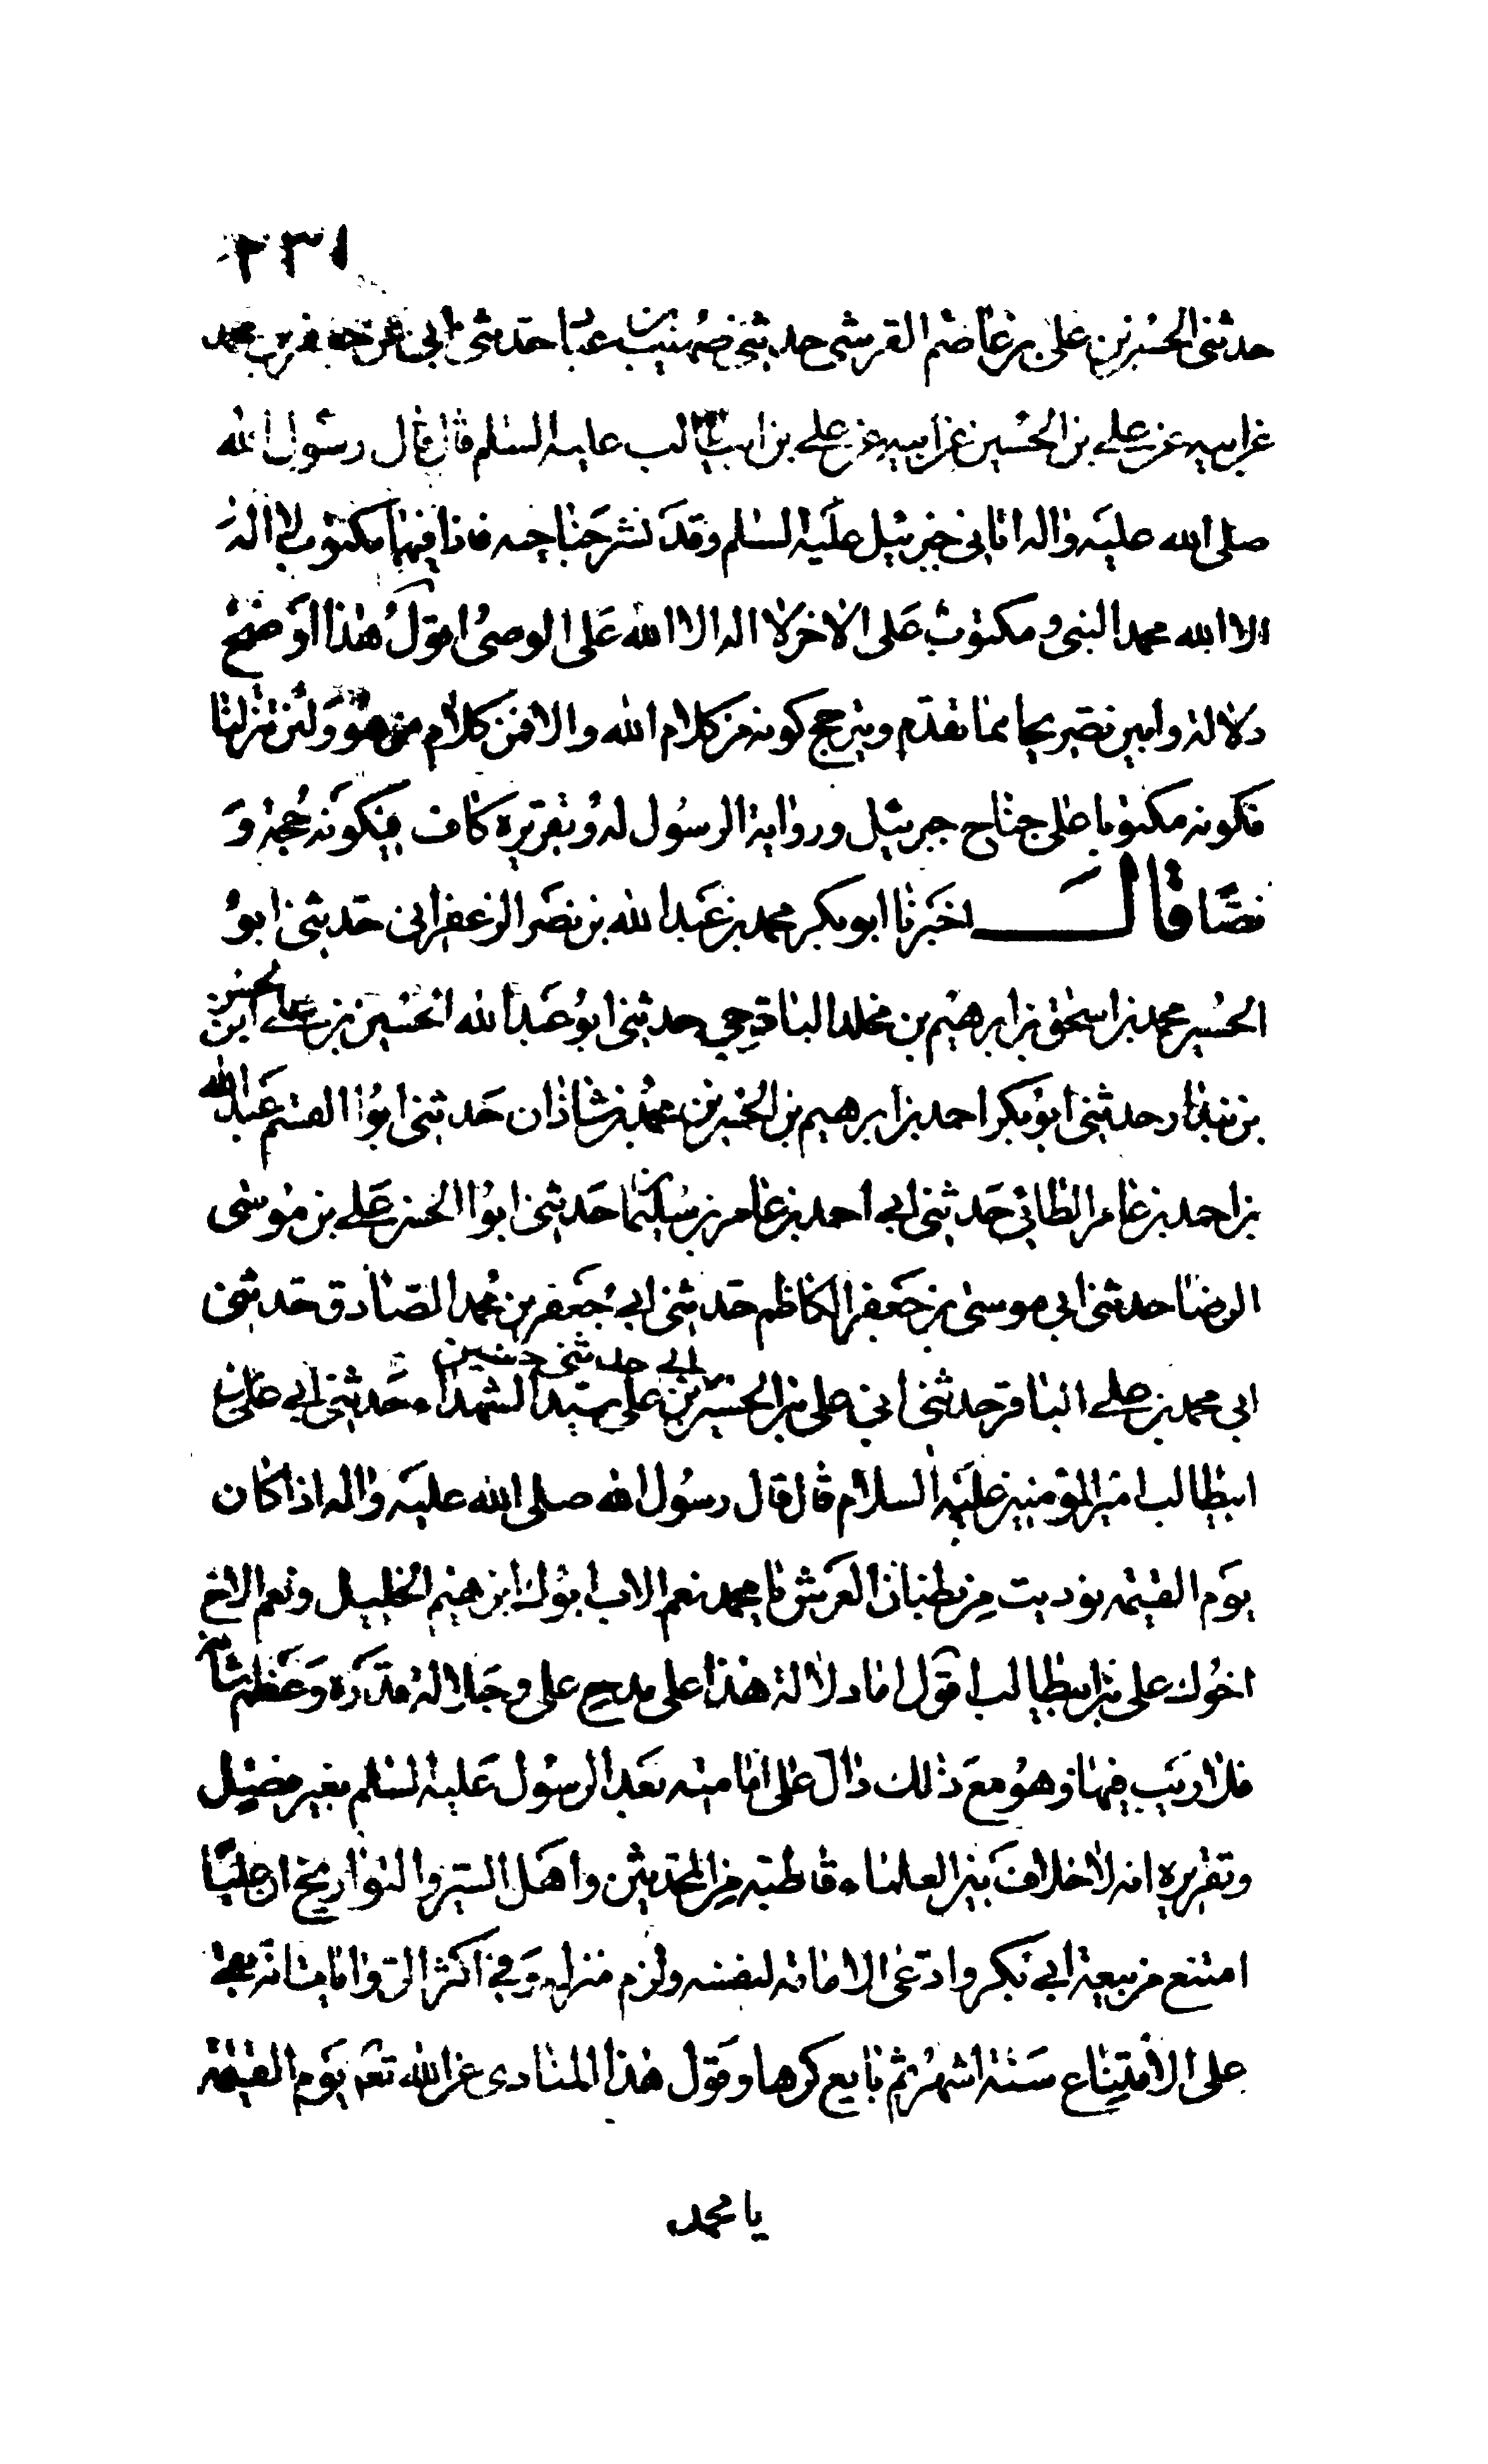 ٢٣١
حدثنى الحسن بن على بن عاصم القرشى حدثنى صهيب بن عباد حدثنى ابى عن جعفر بن محمد
عن ابيه عن على بن الحسين عن ابيه عن على بن ابيطالب عليه السلم قال قال رسول الله
صلى الله عليه واله اتانى جبرئيل عليه السلم وقد نشر جناحيه فاذا فيها مكتوب لا اله
الا الله محمد النبى و مكتوب على الاخر لا اله الا الله على الوصى اقول هذا اوضح
دلالة وابين تصريحا مما تقدم ويترجح كونه من كلام الله والا فمن كلام من هو ولئن نزلنا
فكونه مكتوبا على جناح جبرئيل ورواية الرسول له وتقريره كاف فيكونه حجة و
نصا قال اخبرنا ابو بكر محمد بن عبد الله بن نصر الزعفرانى حدثنى ابو
الحسين محمد بن اسحق بن ابرهيم بن مخلد الباقرحى حدثنى ابو عبد الله الحسين بن على ابن الحسن
بن بندار حدثنى ابو بكر احمد بن ابرهيم بن الحسن بن محمد بن شاذان حدثنى ابوا القسم عبد الله
بن احمد بن عامر الطائى حدثنى ابى احمد بن عامر بن سليمان حدثنى ابوا الحسن على بن موسى
الرضا حدثنى ابى موسى بن جعفر الكاظم حدثنى ابى جعفر بن محمد الصادق حدثنى
ابى محمد بن على الباقر حدثنى ابى على بن الحسين حدثنى ابى حسين بن على سيد الشهداء حدثنى ابى على بن
ابيطالب امير المؤمنين عليه السلام قال قال رسول الله صلى الله عليه واله اذا كان
يوم القيمة نوديت من بطنان العرش يا محمد نعم الاب ابوك ابرهيم الخليل ونعم الاخ
اخوك على بن ابيطالب اقول اما دلالة هذا على مدح على وجلالة قدره وعظم شانه
فلا ريب فيها وهو مع ذلك دال على امامته بعد الرسول عليه السلم بغير فصل
وتقريره انه لا خلاف بين العلماء قاطبة من المحدثين واهل السير والتواريخ ان عليا
امتنع من بيعة ابى بكر وادعى الامامة لنفسه ولزم منزله وفى اكثر الروايات انه بقى
على الامتناع ستة اشهر ثم بايع كرها وقول هذا المنادى عن الله تعم يوم القيمة
يا محمد